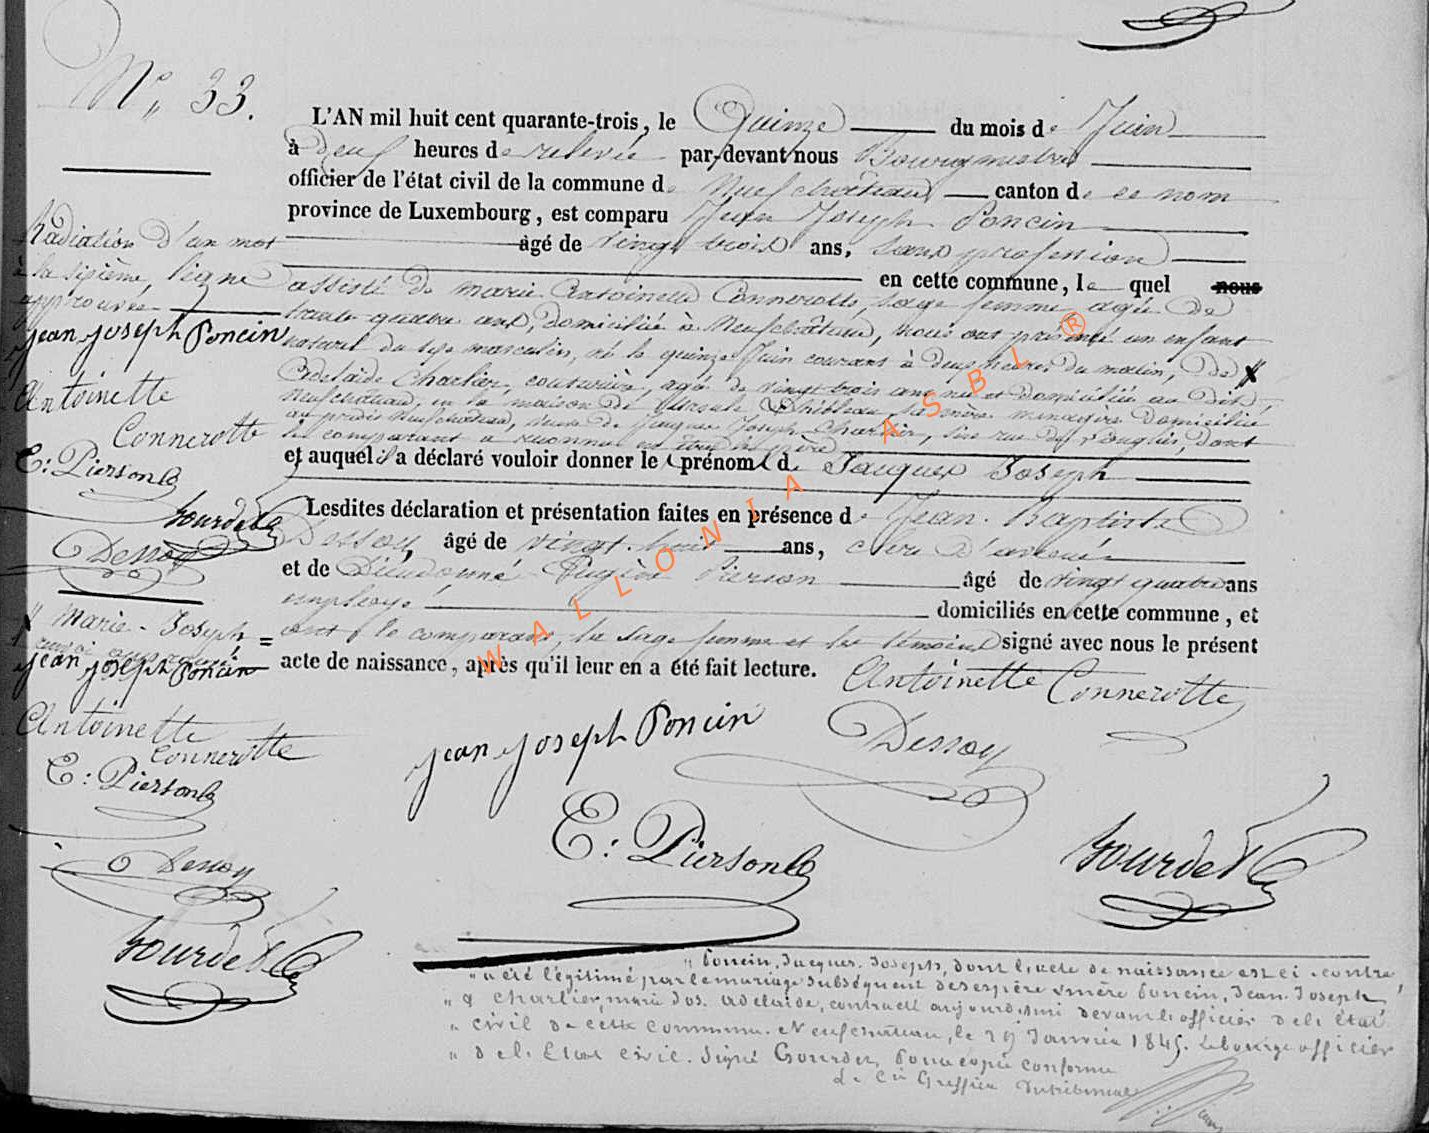 N° 33.
L'AN mil huit cent quarante-trois, le Quinze du mois de Juin
à deux heures de relevée par-devant nous Bourgmestre
officier de l'état civil de la commune de Neufchâteau canton de ce nom
province de Luxembourg, est comparu Jean Joseph Poncin
âgé de vingt trois ans, sans profession
en cette commune, le quel nous
assisté de marie Antoinette Connerotte, sage femme, agée de
trente quatre ans, domiciliée à Neufchâteau, nous ont présenté un enfant
naturel du sexe masculin, né le quinze Juin courant à deux heures du matin, de X
Adelaïde Charlier, couturière, agée de vingt trois ans, née et domiciliée au dit
Neufchâteau, en la maison de Ursule sa mère ménagère domiciliée
au predit Neufchâteau, veuve de Jacques Joseph Charlier, sise rue du dont
le comparant a reconnu être le père
et auquel il a déclaré vouloir donner les prénoms de Jacques Joseph
Lesdites déclaration et présentation faites en présence de Jean-Baptiste
Dessoy, âgé de vingt huit ans, clerc d'avoué
et de Dieudonné Eugène Pierson âgé de vingt quatre ans
employé domiciliés en cette commune, et
ont le comparant, la sage femme et les témoins signé avec nous le présent
acte de naissance, après qu'il leur en a été fait lecture.
Antoinette Connerotte
jean joseph Poncin
Dessoy
E: Pierson
Gourdet
Radiation d'un mot
à la sixième ligne
approuvée
jean joseph Poncin
Antoinette
Connerotte
E: Pierson
Gourdet
Dessoy
X Marie-Joseph =
aussi approuvé
jean joseph Poncin
Antoinette
Connerotte
E: Pierson
Dessoy
Gourdet
" Poncin, Jacques-Joseph, dont l'acte de naissance est ci-contre,
" a été légitimé par le mariage subséquent de ses père & mère Poncin, Jean-Joseph
" & Charlier, marie Jos. adelaide, contracté aujourd'hui devant l'officier de l'État
" civil de cette commune. Neufchateau, le 29 Janvier 1845. Le bourgm officier
" de l'Etat civil. Signé Gourdet, Pour copie conforme
Le Cis Greffier du tribunal
WALLONIA ASBL ®